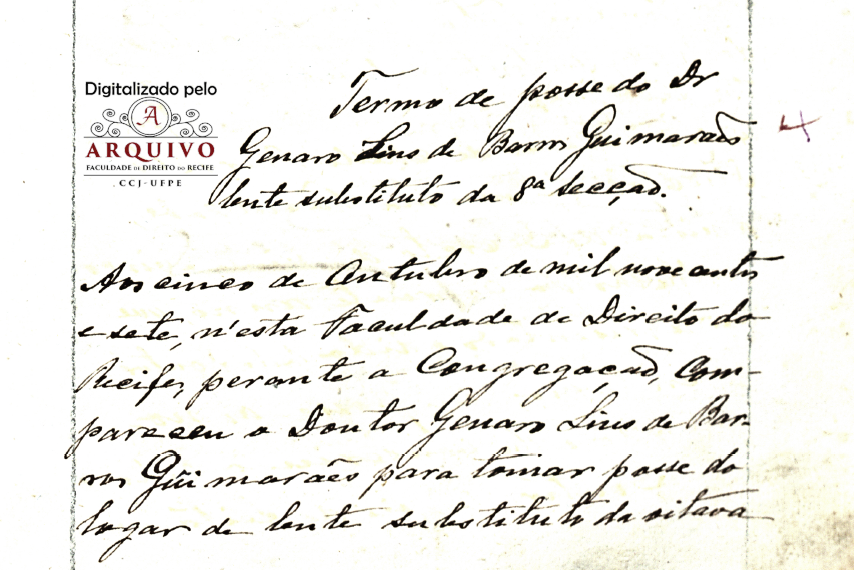 Digitalizado pelo
A
ARQUIVO
FACULDADE DE DIREITO DO RECIFE
CCJ-UFPE
Termo de posse do Dr
Genaro Lins de Barros Guimarães
lente substituto da 8ª secção.
4
Aos cinco de Outubro de mil nove centos
e sete, n'esta Faculdade de Direito do
Recife, perante a Congregação, com-
pareceu o Doutor Genaro Lins de Bar-
ros Guimarães para tomar posse do
logar de lente substituto da oitava